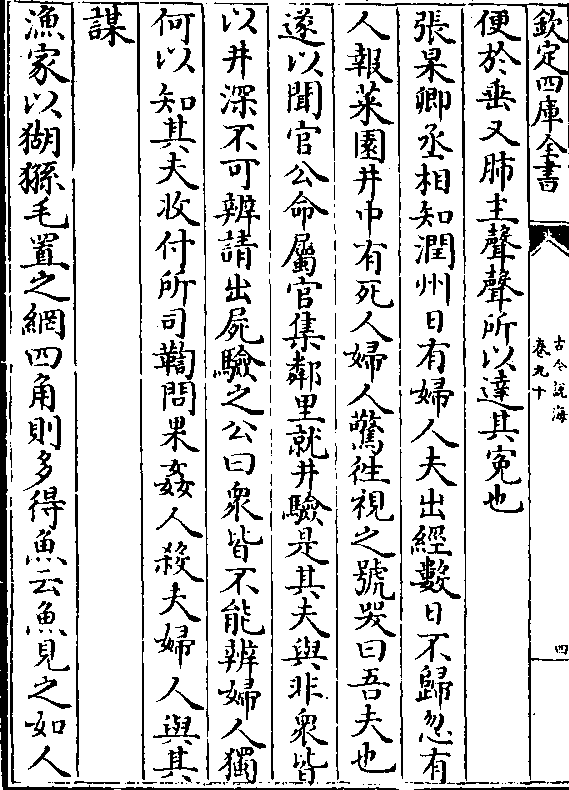 欽定四庫全書
古今說海
卷九十
四
便於垂又肺主聲聲所以達其寃也
張杲卿丞相知潤州日有婦人夫出經數日不歸忽有
人報菜園井中有死人婦人驚徃視之號哭曰吾夫也
遂以聞官公命屬官集鄰里就井驗是其夫與非衆皆
以井深不可辨請出屍驗之公曰衆皆不能辨婦人獨
何以知其夫收付所司鞫問果姦人殺夫婦人與其
謀
漁家以猢猻毛置之網四角則多得魚云魚見之如人